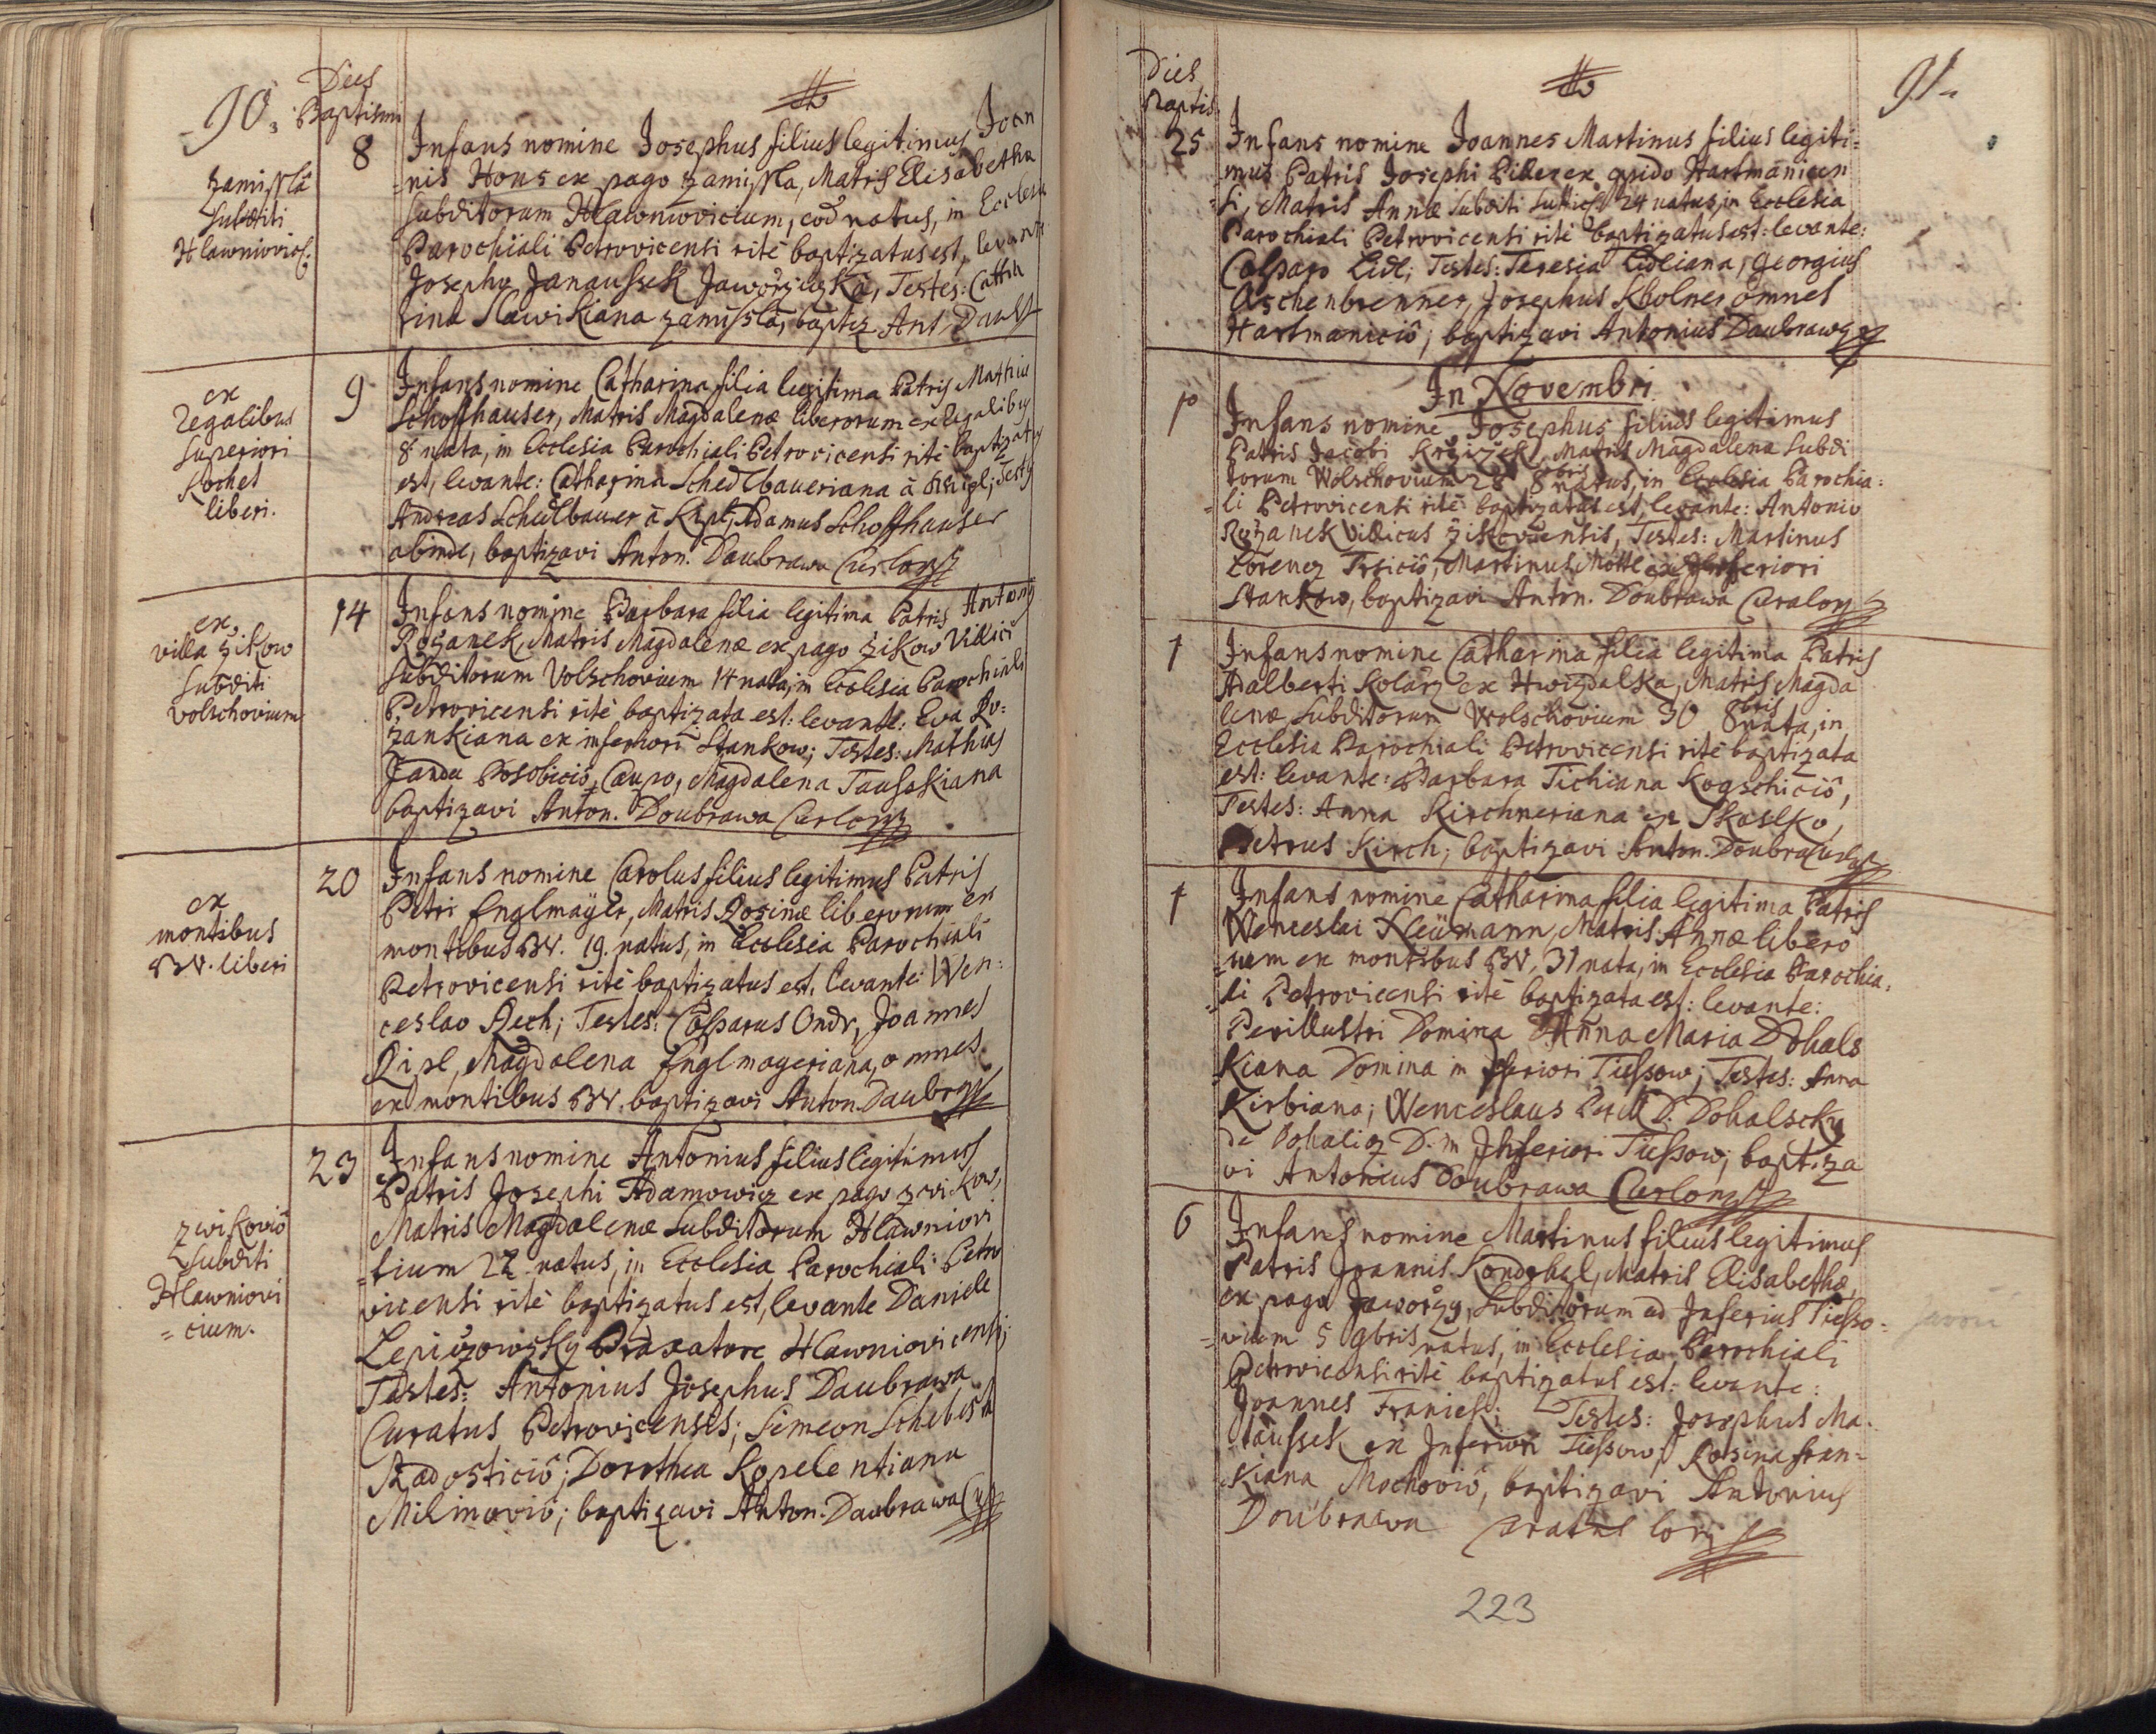 90.
Dies
Baptismi
zamissla
subditi
Hlawniovics:
8
Infans nomine Josephus filius legitimus Joan
=nis Hons ex pago zamissla, Matris Elisabetha
subditorum Hlawniovicium, eod natus, in Ecclesia
Parochiali Petrovicensi rité baptizatus est, levante
Josepho Janaussek Jaworziczka, Testes: Catha
rina Slawikiana zamissla, baptiz Ant. Daubr
ex
regalibus
superiori
Kochet
liberi.
9
Infans nomine Catharina filia legitima Patris Mathiæ
Schoffhauser, Matris Magdalenæ liberorum ex legalibus
8 nata, in Ecclesia Parochiali Petrovicensi rité baptizata
est, levante: Catharina Schedlbaueriana à Testes
Andreas Schedlbauer à Adamus Schoffhauser
abinde, baptizavi Anton. Daubrawa Cur lory
ex
villa zikow
subditi
Volschovium
14
Infans nomine Barbara filia legitima Patris Antony
Rozanek, Matris Magdalenæ ex pago zikow Villici
subditorum Volschovium 14 nata, in Ecclesia Parochiali
Petrovicensi rité baptizata est: levante: Eva Ro:
zankiana ex inferiori Stankow; Testes: Mathias
Janda Bosobicio, Caupo, Magdalena Tauskiana
baptizavi Anton. Doubrawa Cur lory
ex
montibus
BW. liberi
20
Infans nomine Carolus filius legitimus Patris
Petri Englmaÿer, Matris Rosinæ liberorum ex
montibus BW. 19. natus, in Ecclesia Parochiali
Petrovicensi rité baptizatus est, levante Wen:
ceslao Rech; Testes: Casparus Ondr, Joannes
Risl, Magdalena Englmayeriana, omnes
ex montibus BW. baptizavi Anton Daubr
zwikovio
subditi
Hlawniovi
=cium.
23
Infans nomine Antonius filius legitimus
Patris Josephi Adamowicz ex pago zwikow,
Matris Magdalenæ subditorum Hlawniovi
=tium 22 natus, in Ecclesia Parochiali Petro
vicensi rité baptizatus est, levante Daniele
Lepizowsky Braxatore Hlawniovicensi;
Testes: Antonius Josephus Daubrawa
Curatus Petrovicensis; Simeon Schebesta
Radosticiô; Dorothea Kopelentiana
Milinovio; baptizavi Anton. Daubrawa Cur
Dies
Baptis
91.
25
Infans nomine Joannes Martinus filius legiti=
mus Patris Josephi Piber ex opido Hartmanicen
=si, Matris Annæ subditi 24 natus, in Ecclesia
Parochiali Petrovicensi rité baptizatus est: levante:
Casparo Lidl; Testes: Teresia Lidliana, Georgius
Aschenbrenner, Josephus Kholner omnes
Hartmaniciô; baptizavi Antonius Daubrawa
In Novembri.
1o
Infans nomine Josephus filius legitimus
Patris Jacobi Krziziek, Matris Magdalena subdi
torum Wolschovium 28 8bris natus, in Ecclesia Parochia=
=li Petrovicensi rité baptizatus est, levante: Antonio
Rozanek Villicus zikoviensis, Testes: Martinus
Lorencz Trsiciô, Martinus Mottl ex Inferiori
Stankow, baptizavi Anton. Doubrawa Cura lory
1
Infans nomine Catharina filia legitima Patris
Adalberti Kolarz ex Hwizdalka, Matris Magda
lenæ subditorum Wolschovium 30 8bris nata, in
Ecclesia Parochiali Petrovicensi rité baptizata
est: levante: Barbara Tichiana Kogschiciô,
Testes: Anna Kirchneriana ex Skoslko,
Petrus Kirch; baptizavi Anton. Doubra Cur lory
1
Infans nomine Catharina filia legitima Patris
Wenceslai Neümann, Matris Annæ libero
=rum ex montibus BW, 31 nata, in Ecclesia Parochia=
=li Petrovicensi rité baptizata est: levante:
Perillustri Domina Anna Maria Dohals
Kiana Domina in Inferiori Tiessow; Testes: Anna
Kirbiana; Wenceslaus Perill D. Dohalscky
de Dohalicz D. in Inferiori Tiessow; baptiza
vi Antonius Doubrawa Cur lory
6
Infans nomine Martinus filius legitimus
Patris Joannis Kondrhal, Matris Elisabethæ,
ex pago Jaworzy, subditorum ad Inferius Tiesso=
=vium 5 9bris natus, in Ecclesia Parochiali
Petrovicensi rité baptizatus est: levante:
Joannes Franiek; Testes: Josephus Ma=
taussek ex Inferiori Tiessow, Rosina Fran=
Kiana Mochoviô, baptizavi Antonius
Doubrawa Curatus lory
223